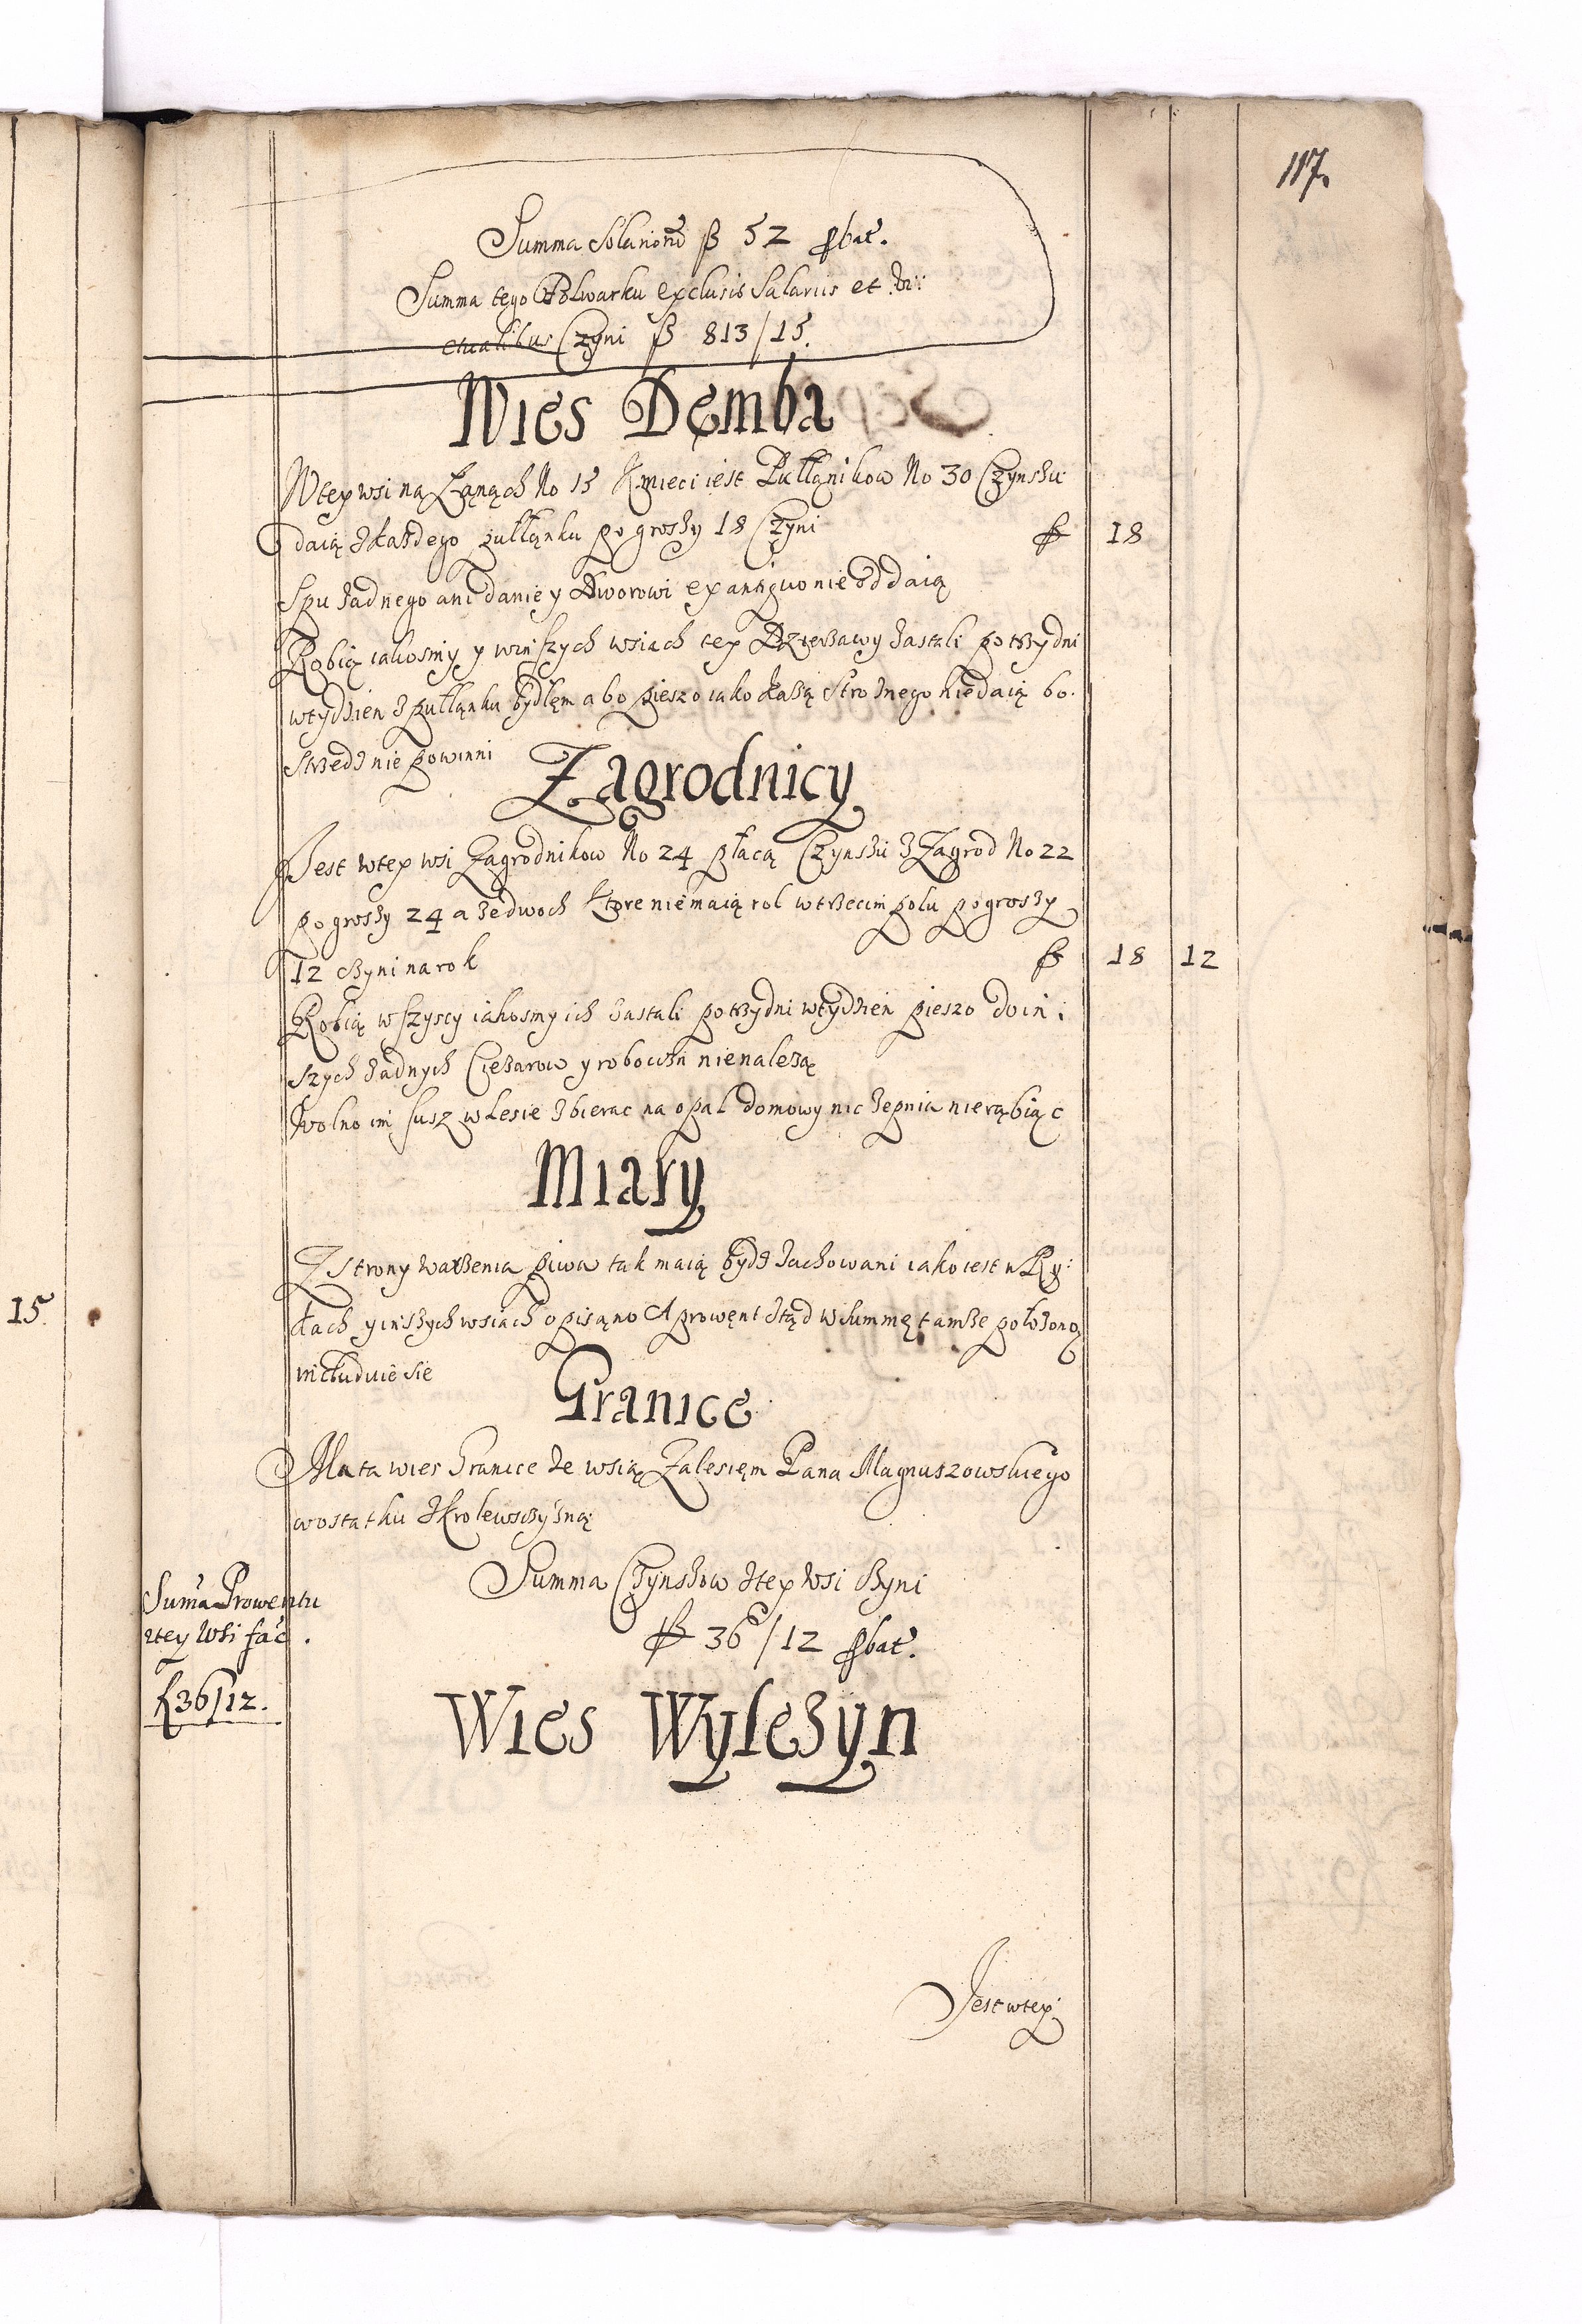 117.
Summa Solariorū ß 52 ꝓbat.
Summa tego Folwarku exclusis Salariis et Vi:
ctualibus Czyni ß 813/15.
Wies Demba
W tey wsi na Łanąch No 15 Kmieci iest Pułłąnikow No 30 Czynszu
daią z każdego pułłąnku po groszy 18 Czyni ß 18
Spu żadnego ani daniey Dworowi ex antiquo nie oddaią
Robią iakosmy y w inszych wsiach tey Dzierżawy zastali po trzy dni
w tydzien z pułłąnku bydłem abo pieszo iako każą Stroznego nie daią bo.
strzedz nie powinni
Zagrodnicy
Jest w tey wsi Zagrodnikow No 24 płacą Czynszu z Zagrod No 22
po groszy 24 a ze dwoch Ktore nie maią rol w trzecim polu po groszy
12 czyni na rok ß 18 12
Robią wszyscy iakosmy ich zastali po trzy dni w tydzien pieszo do in:
szych żadnych Ciężarow y robocizn nie należą
Wolno im susz w Lesie zbierac na opal domowy nic ze pnia nie rąbiąc
Miary
Z strony warzenia piwa tak maią bydz zachowani iako iest w Ry:
kach y inszych wsiach opisąno A prowęnt ztąd w summę tamże położony
includuie sie
Granice
Ma ta wies Granice ze wsią Zalesięm Pana Magnuszowskiego
w ostatku z Krolewszczyzną
Summa Czynszow z tey Wsi czyni
ß 36/12 ꝓbat.
Suma Prowentu
z tey Wsi fac.
ƒ 36/12.
Wies Wylezyn
Jest w tey
15.